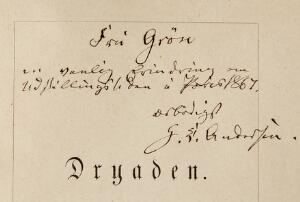 Fru Grøn
en venlig Erindring om
Udstillingstiden i Paris 1867.
ærbødigst
H. C. Andersen.
Dryaden.